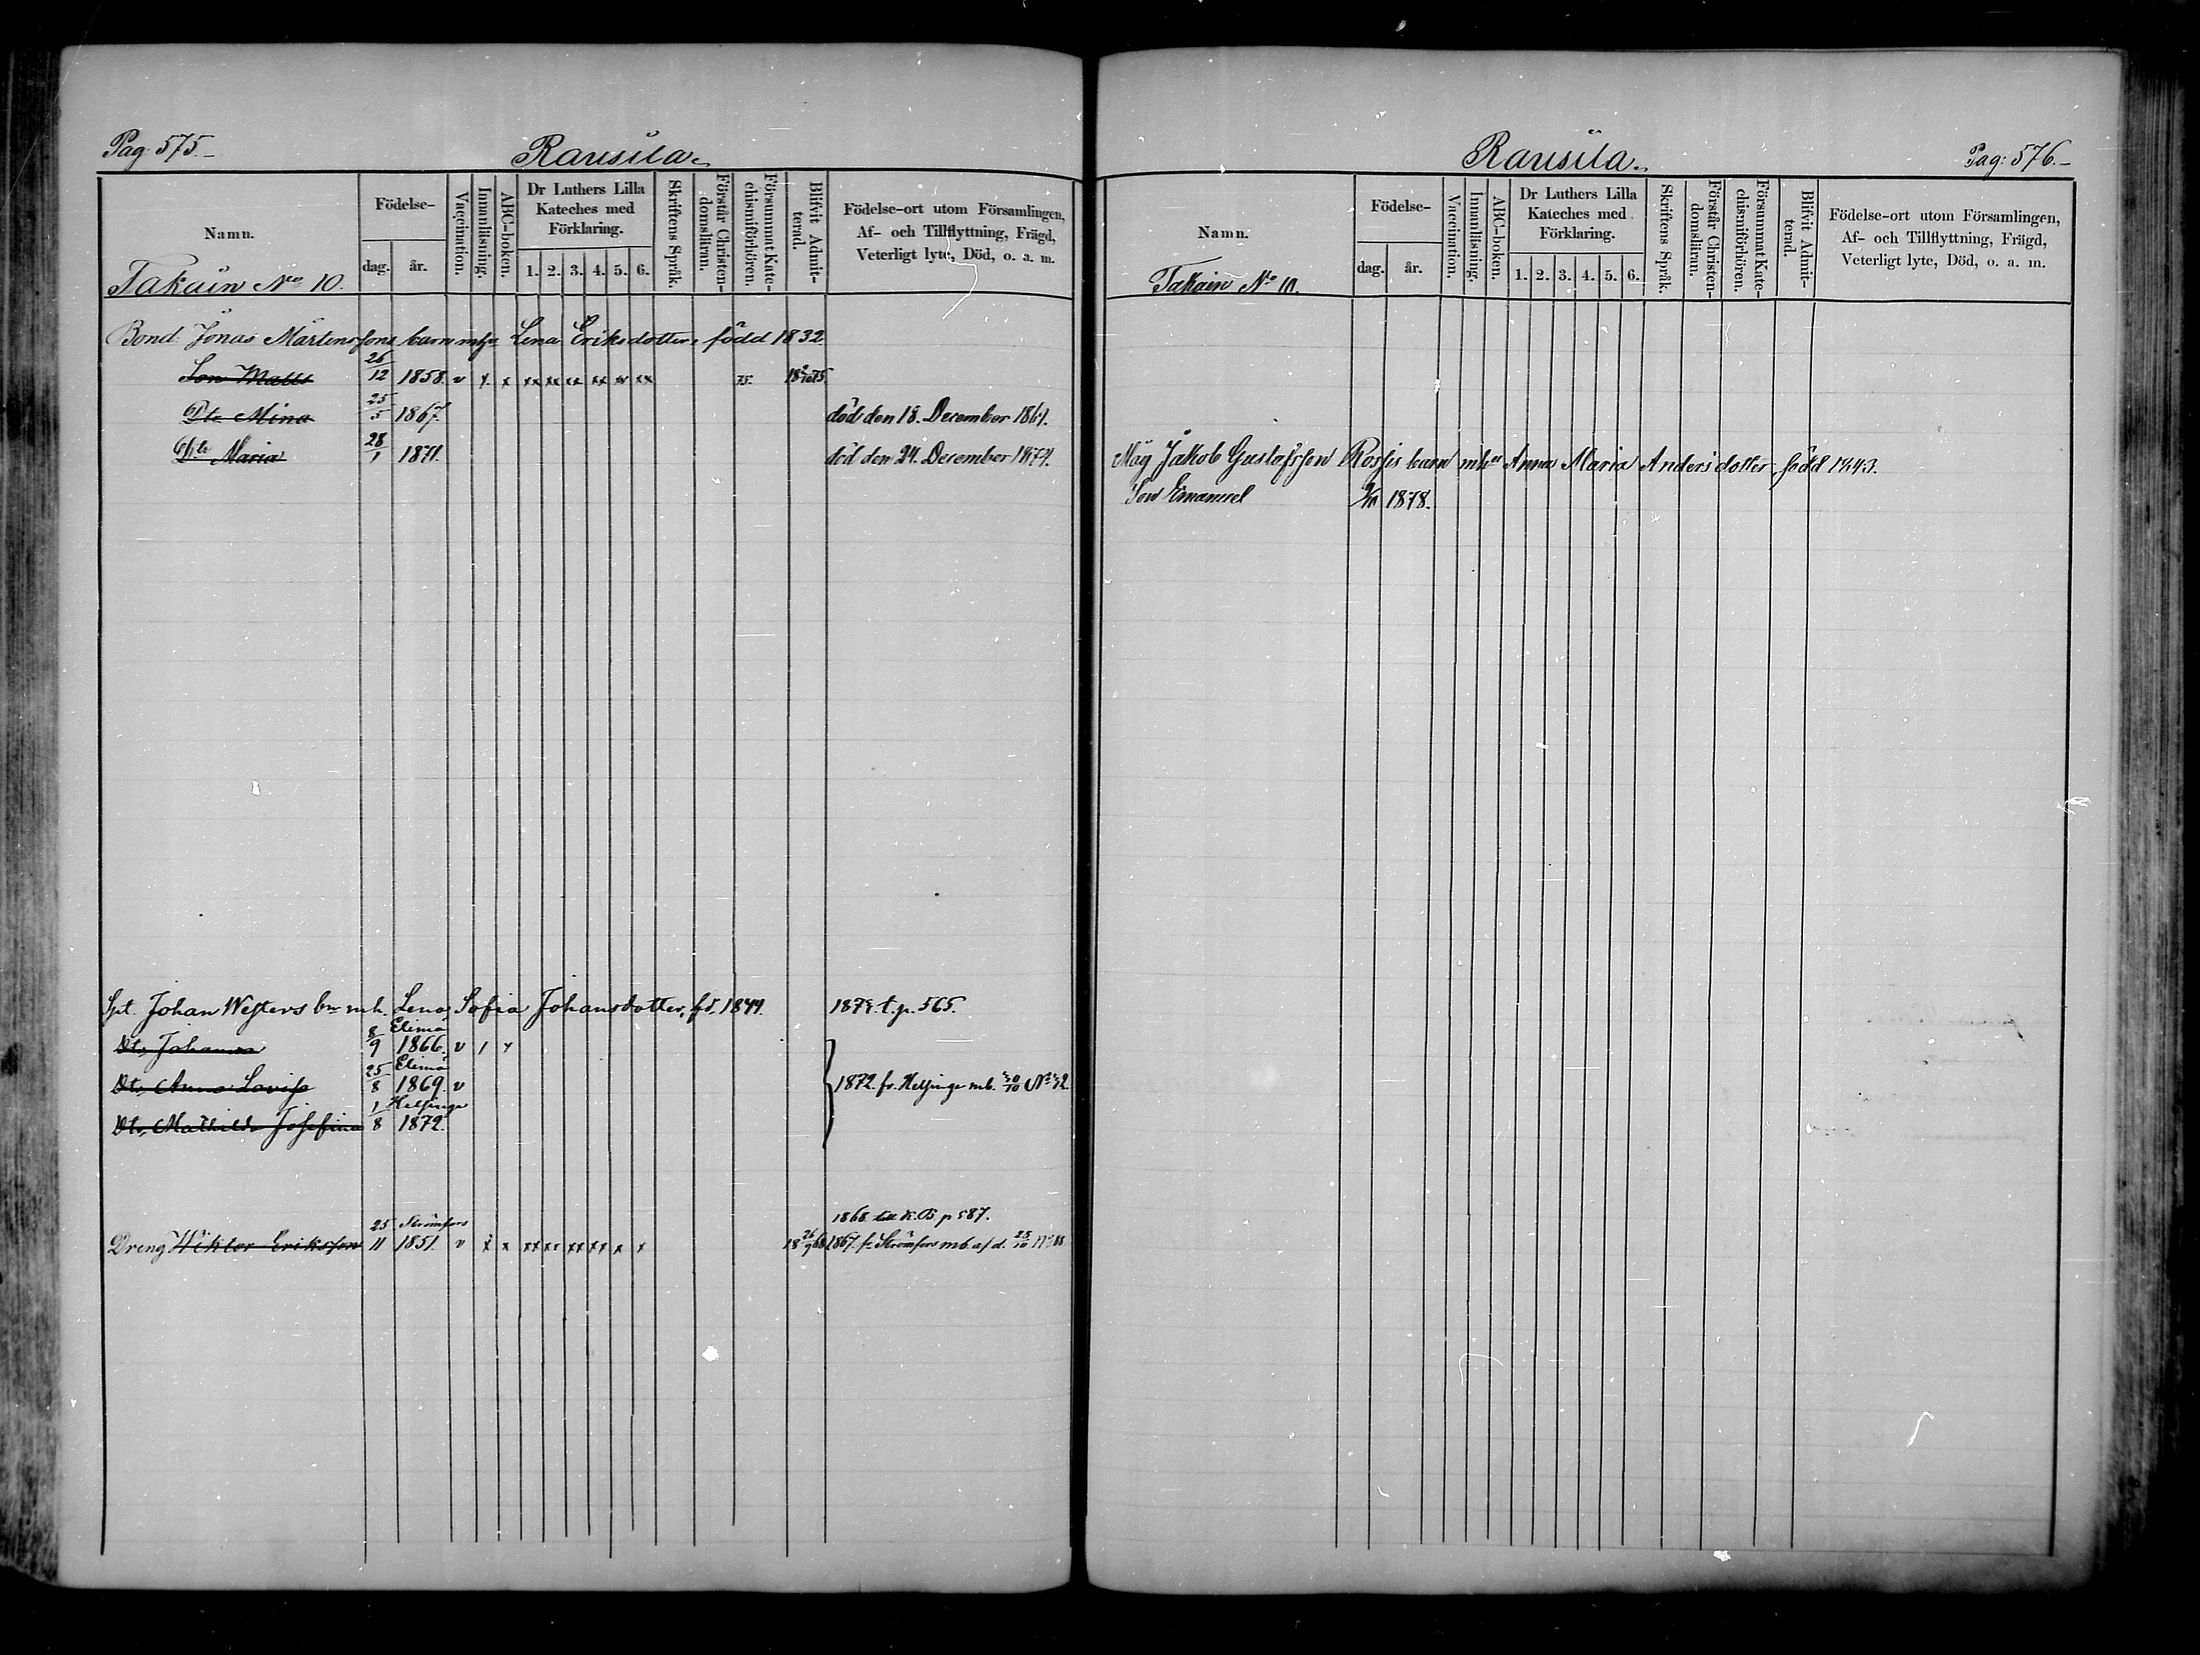 Pag: 575.
Ransila.
Namn.
Takain No 10.
Födelse-
dag.
år.
Vaccination.
Innanläsning.
ABC-boken.
Dr Luthers Lilla
Kateches med
Förklaring.
1. 2. 3. 4. 5. 6.
Skriftens Språk.
Förstår Christen-
domsläran.
Försummat Kate-
chismiförhören.
Blifvit Admit-
terad.
Födelse-ort utom Församlingen,
Af- och Tillflyttning, Frägd,
Veterligt lyte, Död, o. a. m.
Bond. Jonas Mårtensson barn mh Lena Eriksdotter, född 1832
Son Matts 26/12 1858. v x x xx xx xx xx xx xx 75.
Dtr Mina 25/5 1867. död den 18. December
Dtr Maria 28/1 1871. död den 24. December
Spt. Johan Westers bn mh. Lena Sofia Johansdotter, fd. 1844. t. p. 565.
Elimä
Dtr Johanna 8/9 1866. v
Elimä
Dtr Anna Lovisa 25/8 1869. v 1872. fr. Helsinge mb.
Helsinge
Dtr Mathilda Josefina 1/8 1872.
Strömfors 1868. K.B. p 587.
Dreng Wiktor Eriksson 25/11 1851. v x x xx xx xx xx x x 18 26/9 68 1867. fr Strömfors mb. af d.
Pag: 576.
Ransila.
Namn.
Takain No 10.
Födelse-
dag.
år.
Vaccination.
Innanläsning.
ABC-boken.
Dr Luthers Lilla
Kateches med
Förklaring.
1. 2. 3. 4. 5. 6.
Skriftens Språk.
Förstår Christen-
domsläran.
Försummat Kate-
chismiförhören.
Blifvit Admit-
terad.
Födelse-ort utom Församlingen,
Af- och Tillflyttning, Frägd,
Veterligt lyte, Död, o. a. m.
Måg Jakob Gustafsson Rossis barn mh Anna Maria Andersdotter, född 1843.
Son Emanuel 1878.